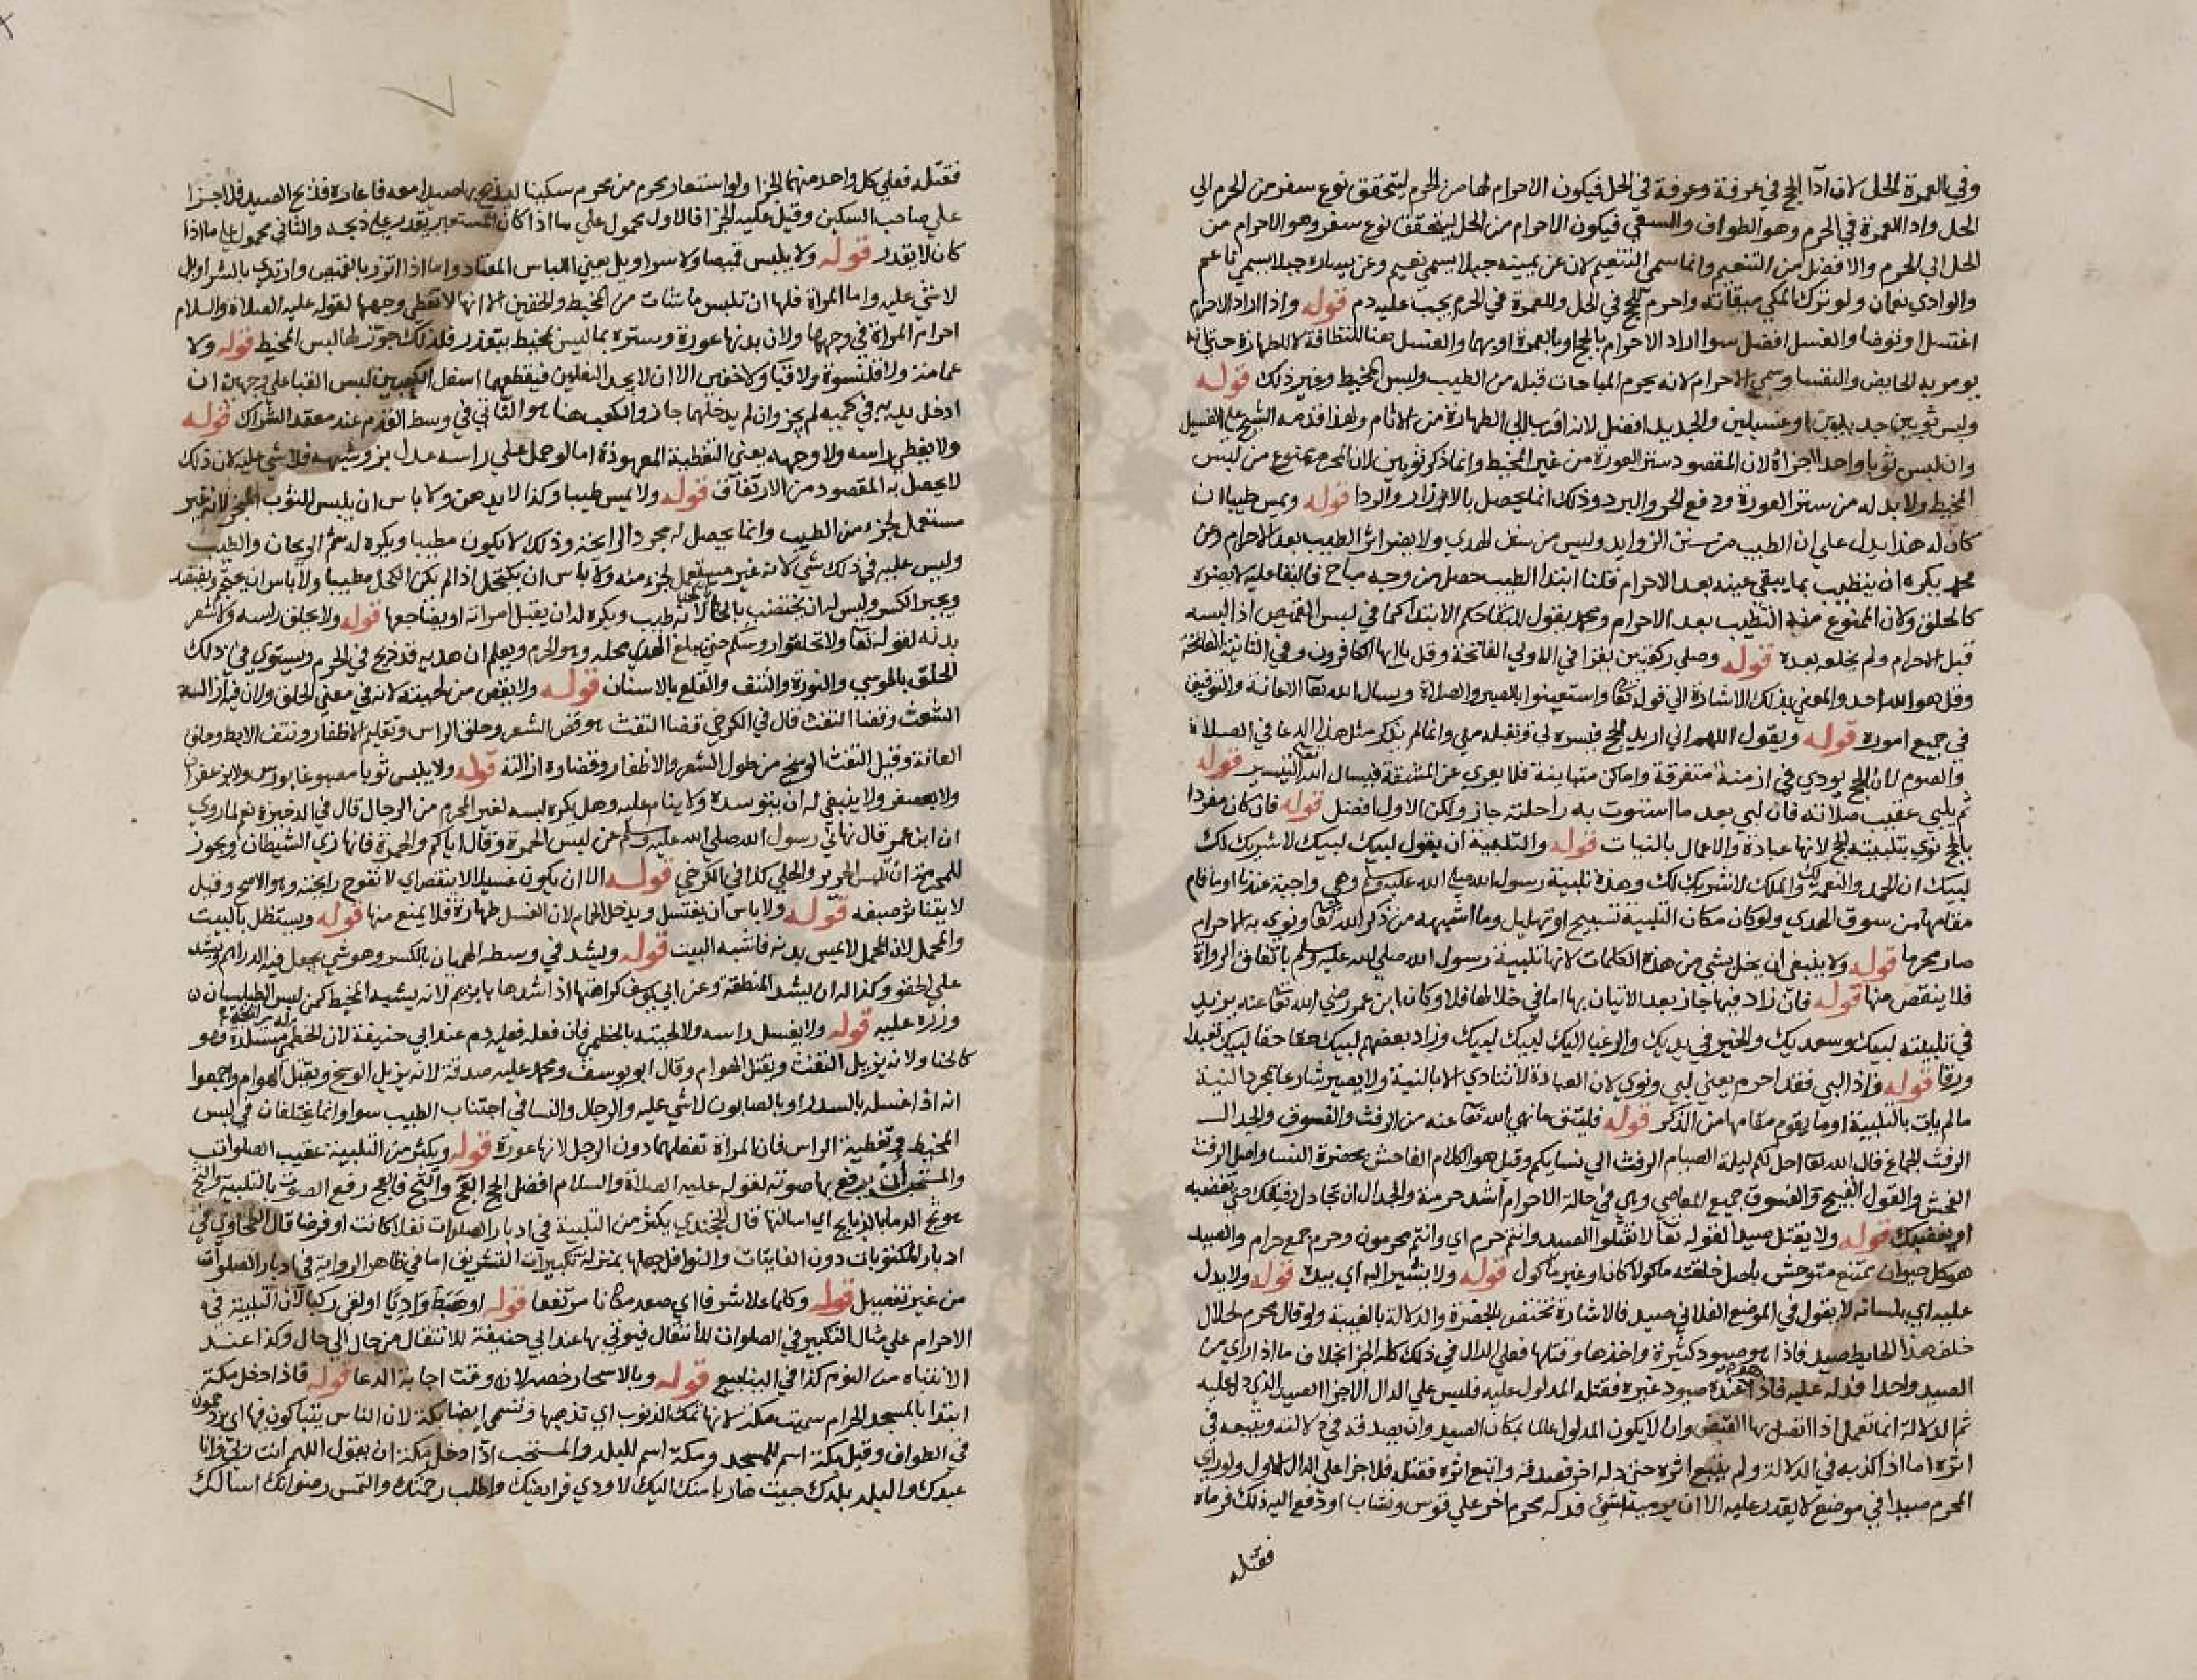 وفي العمرة الحل لان ادآ الحج في عرفة وعرفة في الحل فيكون الاحرام لها من الحرم ليتحقق نوع سفر من الحرم الي
الحل واداالعمرة في الحرم وهو الطواف والسعي فيكون الاحرام من الحل ليتحقق نوع سفر وهو الاحرام من
الحل الي الحرم والافضل من التنعيم وانما سمي التنعيم لان عن يمينه جبلا يسمي نعيم وعن يساره جبلا يسمي ناعم
والوادي نعمان ولو ترك المكي ميقاته واحرم للحج في الحل وللعمرة في الحرم يجب عليه دم قوله واذا اراد الاحرام
اغتسل او توضا والغسل افضل سوا اراد الاحرام بالحج او بالعمرة او بهما والغسل هنا للنظافة لا للطهارة حتي انه
يومر به الحايض والنفسا وسمي الاحرام لانه يحرم المباحات قبله من الطيب ولبس المخيط وغير ذلك قوله
ولبس ثوبين جديدين او غسيلين والجديد افضل لانه اقرب الي الطهارة من الاثام ولهذا قدمه الشيخ علي الغسيل
وان لبس ثوبا واحدا اجزاه لان المقصود ستر العورة من غير المخيط وانما ذكر ثوبين لان المحرم ممنوع من لبس
المخيط ولا بد له من ستر العورة ودفع الحر والبرد وذلك انما يحصل بالازار والردا قوله ويمس طيبا ان
كان له هذا يدل علي ان الطيب من سنن الزوايد وليس من سنن الهدي ولا يضر اثر الطيب بعد الاحرام وعن
محمد يكره ان يتطيب بما يبقي عينه بعد الاحرام قلنا ابتدا الطيب حصل من وجه مباح فالبقا عليه لا يضره
كالحلق ولان الممنوع منه التطيب بعد الاحرام ومحمد يقول للبقا حكم الابتدا كما في لبس القميص اذا لبسه
قبل الاحرام ولم يخلعه بعده قوله وصلي ركعتين يقرا في الاولي الفاتحة وقل يا ايها الكافرون وفي الثانية الفاتحة
وقل هو الله احد والمعني بذلك الاشارة الي قوله تعا واستعينوا بالصبر والصلاة ويسال الله تعا الاعانة والتوفيق
في جميع اموره قوله ويقول اللهم اني اريد الحج فيسره لي وتقبله مني وانما لم يذكر مثل هذا الدعا في الصلاة
والصوم لان الحج يودي في ازمنة متفرقة واماكن متباينة فلا يعري عن المشقة فيسال الله تعا التيسير قوله
ثم يلبي عقيب صلاته فان لبي بعد ما استوت به راحلته جاز ولكن الاول افضل قوله فان كان مفردا
بالحج نوي بتلبيته الحج لانها عبادة والاعمال بالنيات قوله والتلبية ان يقول لبيك لبيك لا شريك لك
لبيك ان الحمد والنعمة لك والملك لا شريك لك وهذه تلبية رسول الله صلي الله عليه وسلم وهي واجبة عندنا او ما قام
مقامها من سوق الهدي ولو كان مكان التلبية تسبيح او تهليل وما اشبهه من ذكر الله تعا ونوي به الاحرام
صار محرما قوله ولا ينبغي ان يخل بشي من هذه الكلمات لانها تلبية رسول الله صلي الله عليه وسلم باتفاق الرواة
فلا ينقص منها قوله فان زاد فيها جاز بعد الاتيان بها اما في خلالها فلا وكان ابن عمر رضي الله تعا عنه يزيد
في تلبيته لبيك وسعديك والخير في يديك والرغبا اليك لبيك لبيك وزاد بعضهم لبيك حقا حقا لبيك تعبدا
ورقا قوله فاذا لبي فقد احرم يعني لبي ونوي لان العبادة لا تتادي الا بالنية ولا يصير شارعا بمجرد النية
ما لم يات بالتلبية او ما يقوم مقامها من الذكر قوله فليتق ما نهي الله تعا عنه من الرفث والفسوق والجدال
الرفث الجماع قال الله تعا احل لكم ليلة الصيام الرفث الي نسايكم وقيل هو الكلام الفاحش بحضرة النسا واصل الرفث
الفحش والقول القبيح والفسوق جميع المعاصي وهي في حالة الاحرام اشد حرمة والجدال ان تجادل رفيقك حتي تغضبه
او يغضبك قوله ولا يقتل صيدا لقوله تعا لا تقتلوا الصيد وانتم حرم اي وانتم محرمون وحرم جمع حرام والصيد
هو كل حيوان ممتنع متوحش باصل خلقته ماكولا كان او غير ماكول قوله ولا يشير اليه اي بيده قوله ولا يدل
عليه اي بلسانه لا يقول في الموضع الفلاني صيد فالاشارة تختص بالحضرة والدلالة بالغيبة ولو قال محرم لحلال
خلف هذا الحايط صيد فاذا هو صيود كثيرة واخذها وقتلها فعلي الدال في ذلك كله الجزا بخلاف ما اذا راي من
الصيد واحدا فدله عليه فاذا عنده صيود غيره فقتله المدلول عليه فليس علي الدال الا جزا الصيد الذي دل عليه
ثم الدلالة انما تعمل اذا اتصل بها القبض وان لا يكون المدلول عالما بمكان الصيد وان يصدقه في دلالته ويتبعه في
اثره اما اذا كذبه في الدلالة ولم يتبع اثره حتي دله اخر فصدقه واتبع اثره فقتله فلا جزا علي الدال الاول ولو راي
المحرم صيدا في موضع لا يقدر عليه الا ان يرميه بشي فدله محرم اخر علي قوس ونشاب او دفع اليه ذلك فرماه
فقتله
فقتله فعلي كل واحد منهما الجزا ولو استعار محرم من محرم سكينا ليذبح بها صيدا معه فاعاره فذبح الصيد فلا جزا
علي صاحب السكين وقيل عليه الجزا فالاول محمول علي ما اذا كان المستعير يقدر علي ذبحه والثاني محمول علي ما اذا
كان لا يقدر قوله ولا يلبس قميصا ولا سراويل يعني اللباس المعتاد واما اذا اتزر بالقميص وارتدي بالسراويل
لا شي عليه واما المراة فلها ان تلبس ما شات من المخيط والخفين الا انها لا تغطي وجهها لقوله عليه الصلاة والسلام
احرام المراة في وجهها ولان بدنها عورة وستره بما ليس بمخيط يتعذر فلذلك جوز لها لبس المخيط قوله ولا
عمامة ولا قلنسوة ولا قبا ولا خفين الا ان لا يجد النعلين فيقطعهما اسفل الكعبين لبس القبا علي وجهين ان
ادخل يديه في كميه لم يجز وان لم يدخلهما جاز والكعب هنا هو الناتي في وسط القدم عند معقد الشراك قوله
ولا يغطي راسه ولا وجهه يعني التغطية المعهودة اما لو حمل علي راسه عدل بز وشبهه فلا شي عليه لان ذلك
لا يحصل به المقصود من الارتفاق قوله ولا يمس طيبا وكذا لا يدهن ولا باس ان يلبس الثوب المبخر لانه غير
مستعمل لجزء من الطيب وانما يحصل له مجرد الرايحة وذلك لا يكون مطيبا ويكره له شم الريحان والطيب
وليس عليه في ذلك شي لانه غير مستعمل لجزء منه ولا باس ان يكتحل اذا لم يكن الكحل مطيبا ولا باس ان يحتجم ويفتصد
ويجبر الكسر وليس له ان يختضب بالحنا لانه طيب ويكره له ان يقبل امراته او يضاجعها قوله ولا يحلق راسه ولا شعر
بدنه لقوله تعا ولا تحلقوا روسكم حتي يبلغ الهدي محله وهو الحرم ويعلم ان هديه قد ذبح في الحرم ويستوي في ذلك
الحلق بالموسي والنورة والنتف والقلع بالاسنان قوله ولا يقص من لحيته لانه في معني الحلق ولان فيه ازالة
الشعث وقضا التفث قال في الكرخي قضا التفث هو قص الشعر وحلق الراس وتقليم الاظفار ونتف الابط وحلق
العانة وقيل التفث الوسخ من طول الشعر والاظفار وقضاوه ازالته قوله ولا يلبس ثوبا مصبوغا بورس ولا بزعفران
ولا بعصفر ولا ينبغي له ان يتوسده ولا ينام عليه وهل يكره لبسه لغير المحرم من الرجال قال في الذخيرة نعم لما روي
ان ابن عمر قال نهاني رسول الله صلي الله عليه وسلم عن لبس الحمرة وقال اياكم والحمرة فانها زي الشيطان ويجوز
للمحرمة ان تلبس الحرير والحلي كذا في الكرخي قوله الا ان يكون غسيلا لا ينفض اي لا تفوح رايحته وهو الاصح وقيل
لا يتناثر صبغه قوله ولا باس ان يغتسل ويدخل الحمام لان الغسل طهارة فلا يمنع منها قوله ويستظل بالبيت
والمحمل لان المحمل لا يمس بدنه فاشبه البيت قوله ويشد في وسطه الهميان بالكسر وهو شي يجعل فيه الدراهم ويشد
علي الحقو وكذا له ان يشد المنطقة وعن ابي يوسف كراهتها اذا شدها بابزيم لانه يشبه المخيط كمن لبس الطيلسان
وزره عليه قوله ولا يغسل راسه ولا لحيته بالخطمي فان فعله فعليه دم عند ابي حنيفة لان الخطمي مستلذة فهو
كالحنا ولانه يزيل التفث ويقتل الهوام وقال ابو يوسف ومحمد عليه صدقة لانه يزيل الوسخ ويقتل الهوام واجمعوا
انه اذا غسله بالسدر او بالصابون لا شي عليه والرجال والنسا في اجتناب الطيب سوا وانما يختلفان في لبس
المخيط وتغطية الراس فان المراة تفعلهما دون الرجل لانها عورة قوله ويكثر من التلبية عقيب الصلوات
والمستحب ان يرفع بها صوته لقوله عليه الصلاة والسلام افضل الحج العج والثج فالعج رفع الصوت بالتلبية والثج
هو ثج الدما بالذبايح اي اسالتها قال الخجندي يكثر من التلبية في ادبار الصلوات نفلا كانت او فرضا قال الطحاوي في
ادبار المكتوبات دون الفايتات والنوافل جعلها بمنزلة تكبيرات التشريق اما في ظاهر الرواية في ادبار الصلوات
من غير تفصيل قوله وكلما علا شرفا اي صعد مكانا مرتفعا قوله او هبط واديا او لقي ركبا لان التلبية في
الاحرام علي مثال التكبير في الصلوات للانتقال فيوتي بها عند ابي حنيفة للانتقال من حال الي حال وكذا عند
الانتباه من النوم كذا في الينابيع قوله وبالاسحار خصه لان وقت اجابة الدعا قوله فاذا دخل مكة
ابتدا بالمسجد الحرام سميت مكة لانها تمك الذنوب اي تذهبها وتسمي ايضا بكة لان الناس يتباكون فيها اي يزدحمون
في الطواف وقيل بكة اسم للمسجد ومكة اسم للبلد والمستحب اذا دخل مكة ان يقول اللهم انت ربي وانا
عبدك والبلد بلدك جيت هاربا منك اليك لاودي فرايضك واطلب رحمتك والتمس رضوانك اسالك